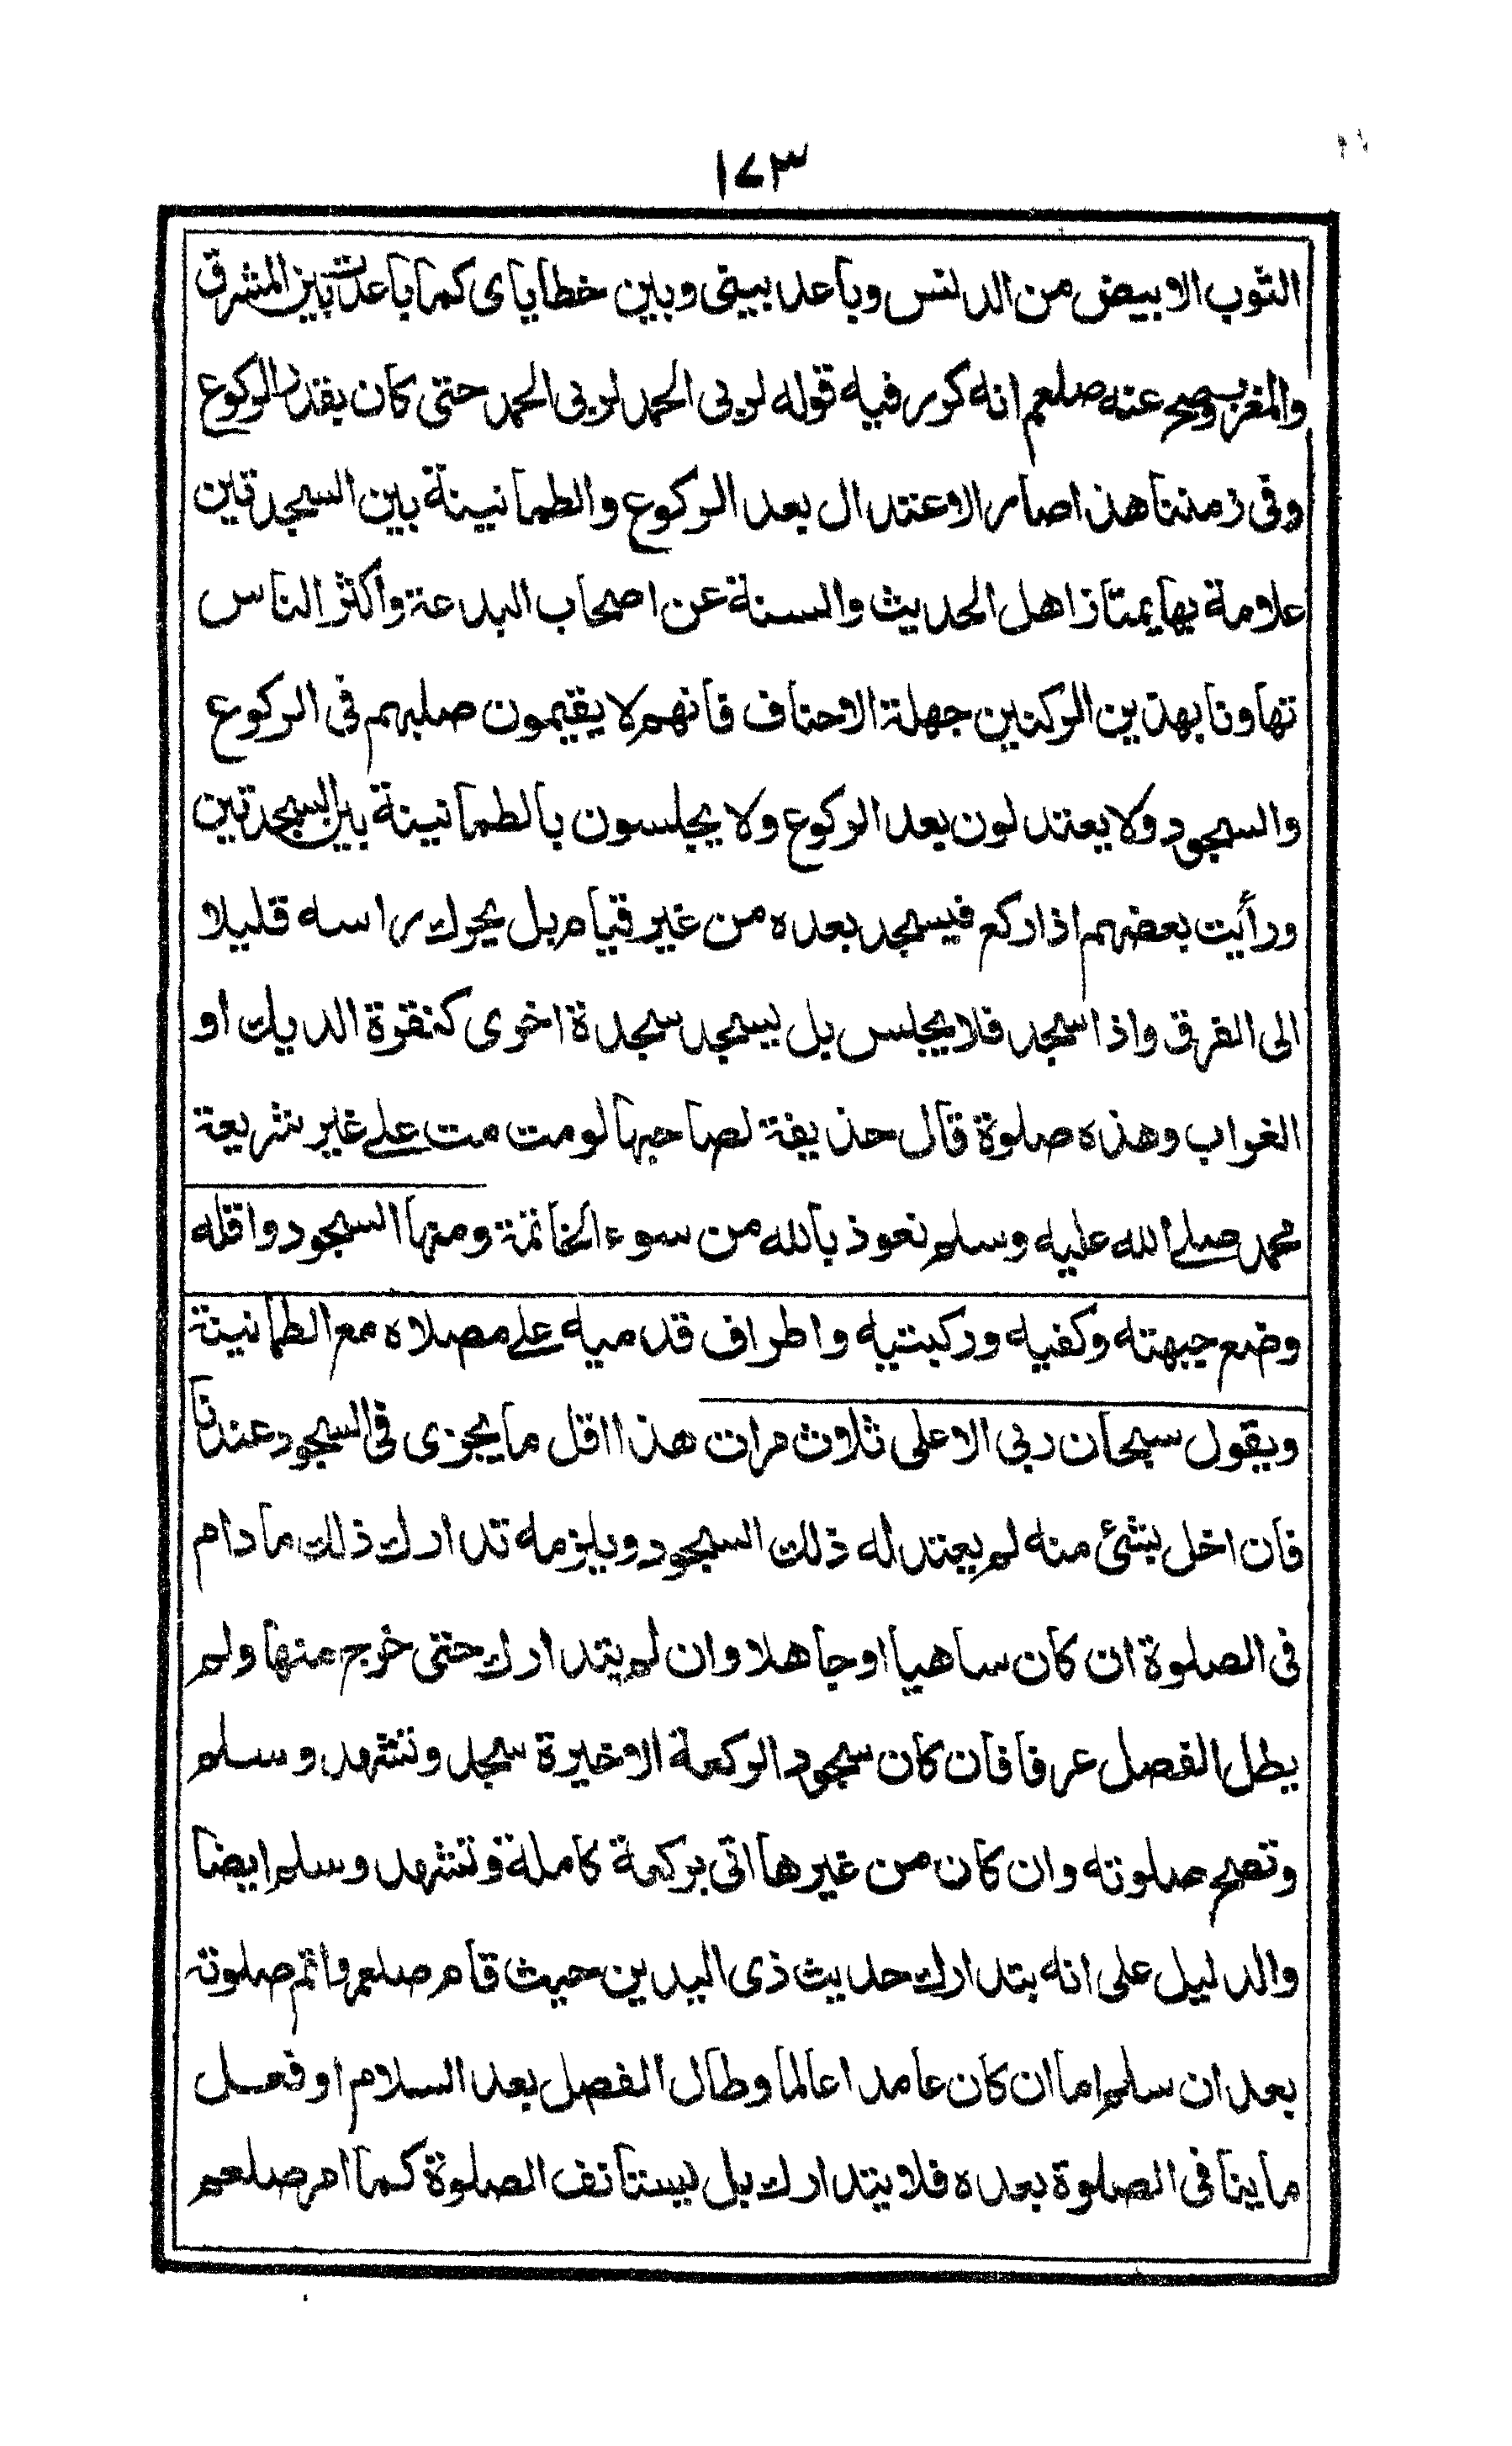 ١٧٣
الثوب الابيض من الدنس وباعد بينى وبين خطاياى كما باعدت بين المشرق
والمغرب وصح عنه صلعم انه كرر فيه قوله لربى الحمد لربى الحمد حتى كان بقدر الركوع
وفى زمننا هذا صار الاعتدال بعد الركوع والطمانينة بين السجدتين
علامة بها يمتاز اهل الحديث والسنة عن اصحاب البدعة واكثر الناس
تهاونا بهذين الركنين جهلة الاحناف فانهم لا يقيمون صلبهم فى الركوع
والسجود ولا يعتدلون بعد الركوع ولا يجلسون بالطمانينة بين السجدتين
ورأيت بعضهم اذا ركع فيسجد بعده من غير قيام بل يحرك راسه قليلا
الى الفرق واذا سجد فلا يجلس بل يسجد سجدة اخرى كنقرة الديك او
الغراب وهذه صلوة قال حذيفة لصاحبها لو مت مت على غير شريعة
محمد صلى الله عليه وسلم نعوذ بالله من سوء الخاتمة ومنها السجود واقله
وضع جبهته وكفيه وركبتيه واطراف قدميه على مصلاه مع الطمانينة
ويقول سبحان ربى الاعلى ثلاث مرات هذا اقل ما يجزى فى السجود عندنا
فان اخل بشئ منه لم يعتد له ذلك السجود ويلزمه تدارك ذلك ما دام
فى الصلوة ان كان ساهيا او جاهلا وان لم يتدارك حتى خرج منها ولم
يطل الفصل عرفا فان كان سجود الركعة الاخيرة سجد وتشهد وسلم
وتصح صلوته وان كان من غيرها اتى بركعة كاملة وتشهد وسلم ايضا
والدليل على انه يتدارك حديث ذى اليدين حيث قام صلعم واتم صلوته
بعد ان سلم اما ان كان عامدا عالما وطال الفصل بعد السلام او فعل
ما ينافى الصلوة بعده فلا يتدارك بل يستانف الصلوة كما امر صلعم